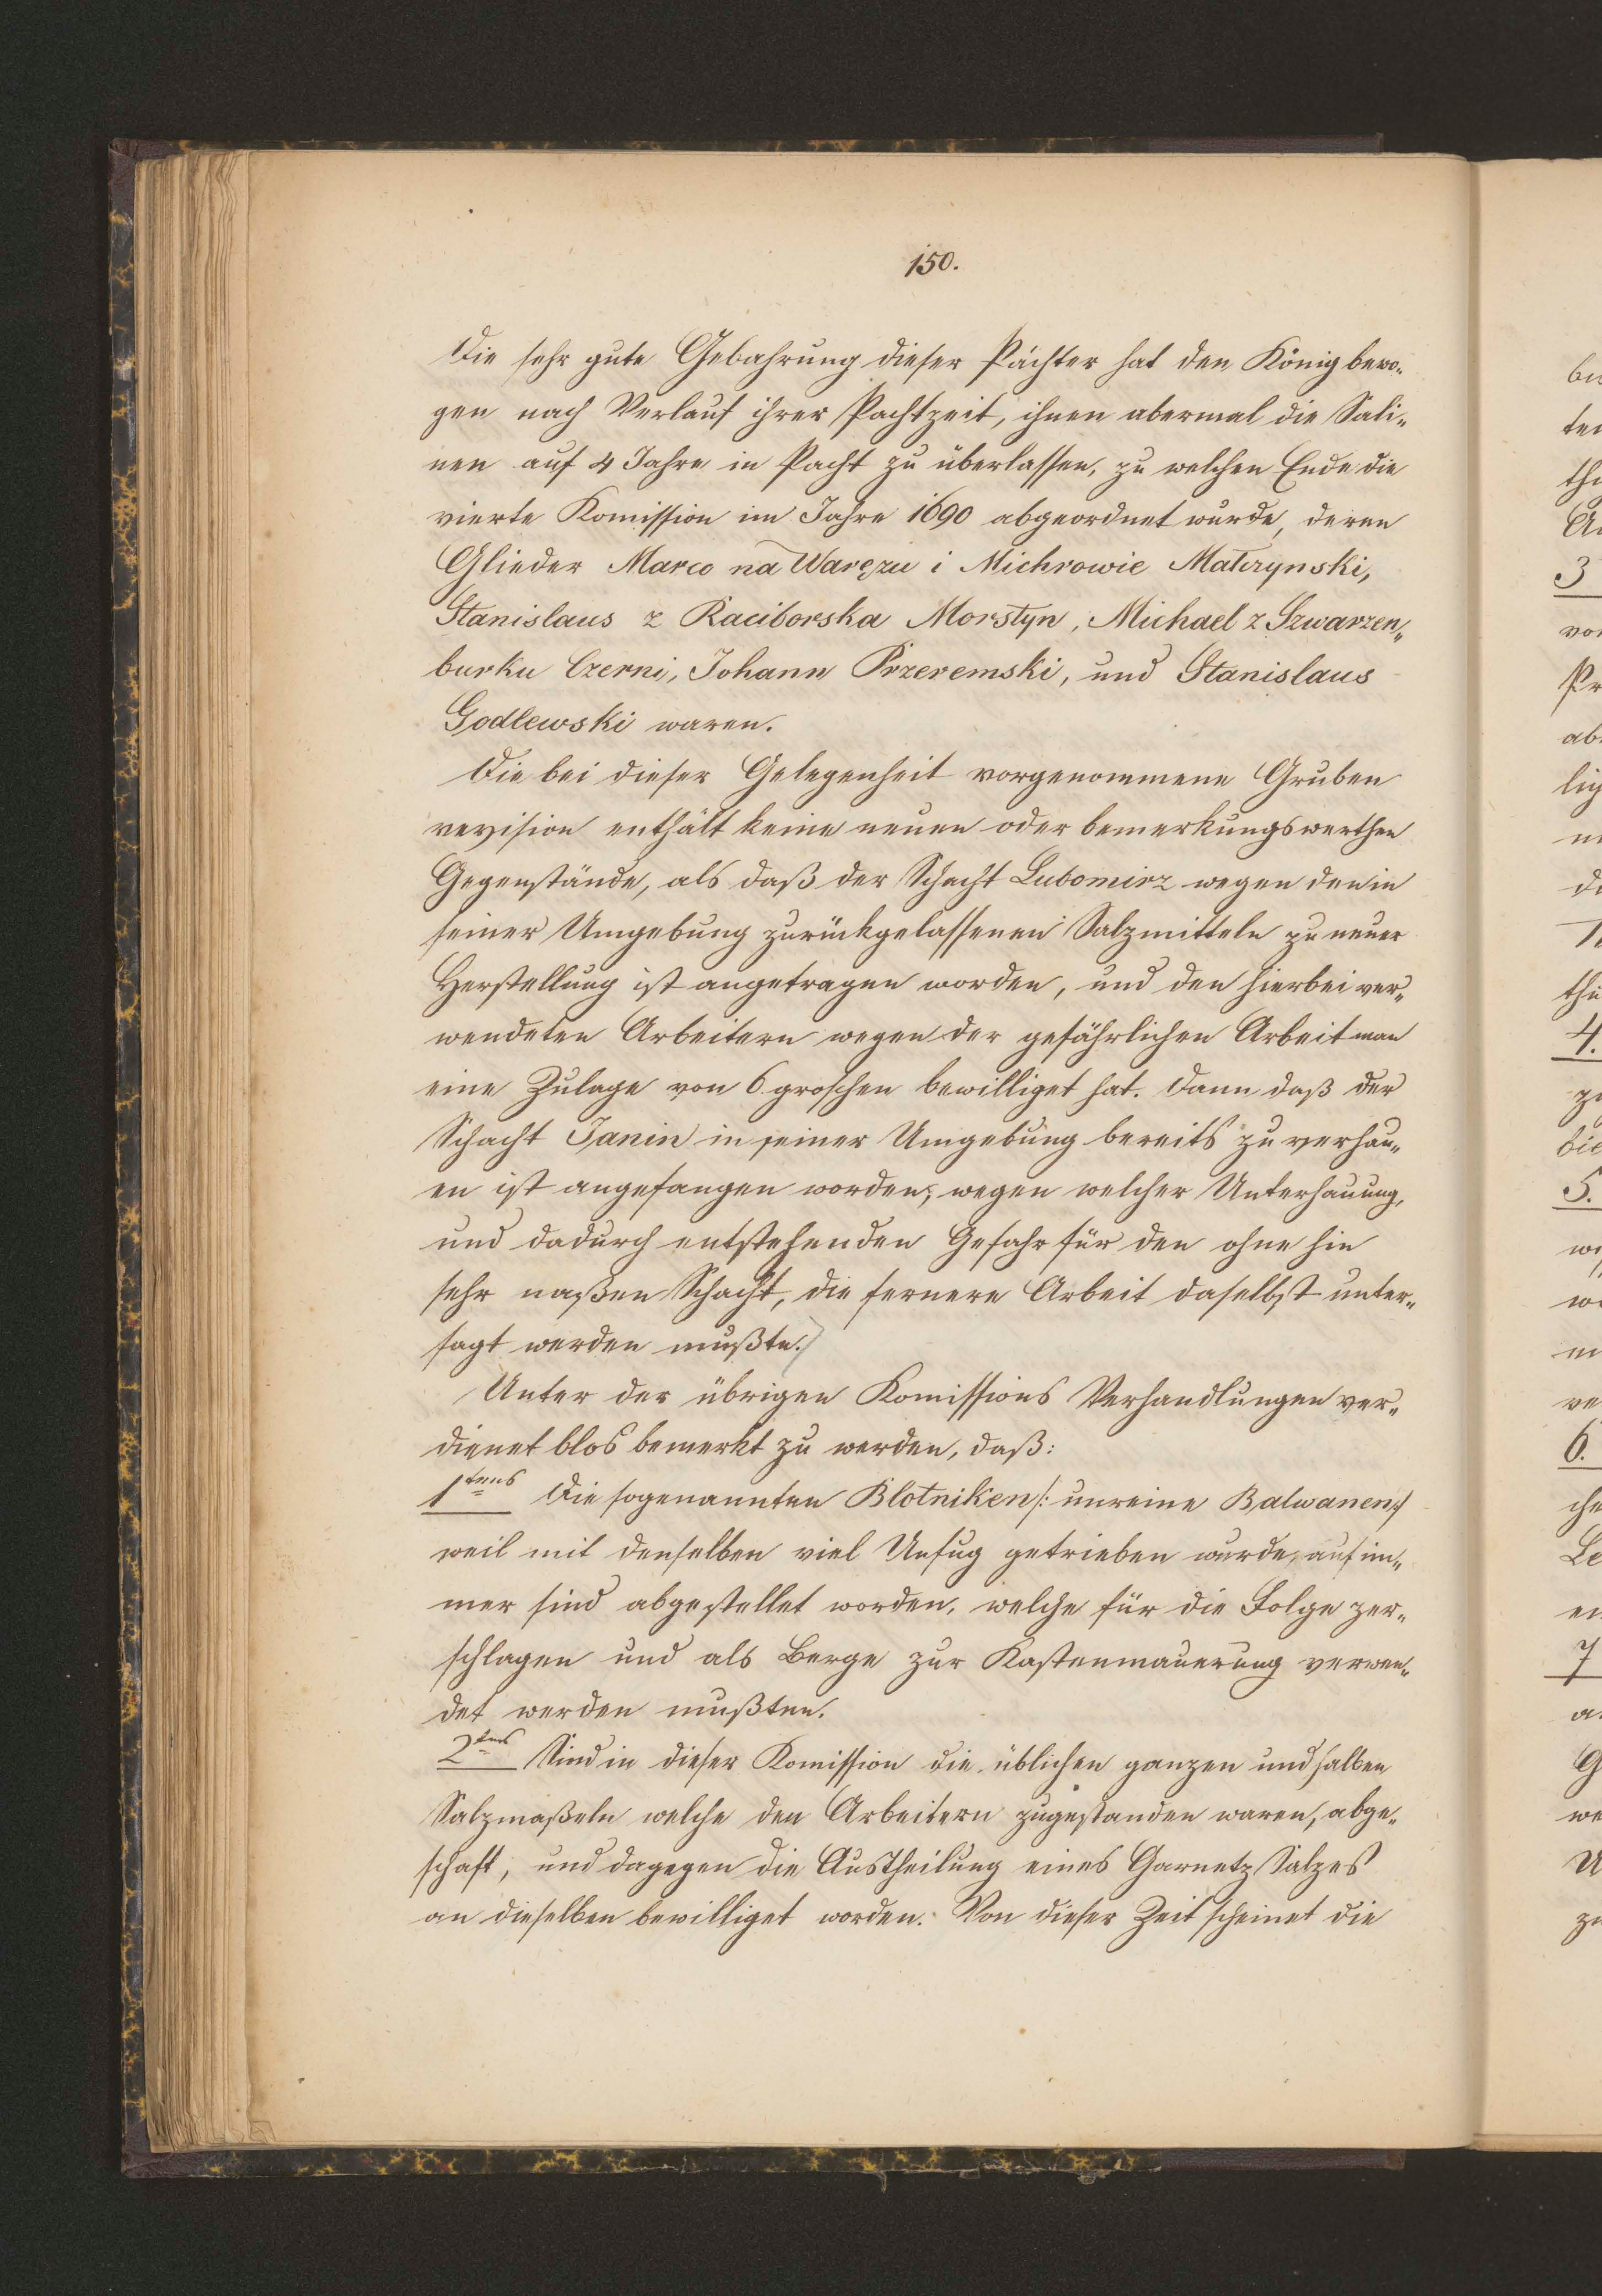 150.
Die sehr gute Gebahrung dieser Pächter hat den König bewo-
gen nach Verlauf ihrer Pachtzeit, ihnen abermal die Sali-
nen auf 4 Jahre in Pacht zu überlassen, zu welchen Ende die
vierte Komission im Jahre 1690 abgeordnet wurde, deren
Glieder Marco na Waręzu i Michrowie Matczynski,
Stanislaus z Raciborska Morstyn, Michael z Szwarzen-
burku Czerni, Johann Przeremski, und Stanislaus
Godlewski waren.
Die bei dieser Gelegenheit vorgenommene Gruben
revision enthält keine neuen oder bemerkungswerthen
Gegenstände, als daß der Schacht Lubomirz wegen den in
seiner Umgebung zurückgelassenen Salzmitteln zu neuer
Herstellung ist angetragen worden, und den hierbei ver-
wendeten Arbeitern wegen der gefährlichen Arbeit man
eine Zulage von 6 groschen bewilliget hat. Dann daß der
Schacht Janin in seiner Umgebung bereits zu verhau-
en ist angefangen worden, wegen welcher Unterhauung,
und dadurch entstehenden Gefahr für den ohne hin
sehr naßen Schacht, die fernere Arbeit daselbst unter-
sagt werden mußte.
Unter der übrigen Komissions Verhandlungen ver-
dienet blos bemerkt zu werden, daß:
1tens Die sogenannten Blotniken /: unreine Balwanen :/
weil mit denselben viel Unfug getrieben wurde, auf im-
mer sind abgestellet worden, welche für die Folge zer-
schlagen und als Berge zur Kastenmauerung verwen-
det werden mußten.
2tens Sind in dieser Komission die üblichen ganzen und halben
Salzmaßeln welche den Arbeitern zugestanden waren, abge-
schaft, und dagegen die Austheilung eines Garnetz Salzes
an dieselben bewilliget worden. Von dieser Zeit scheinet die